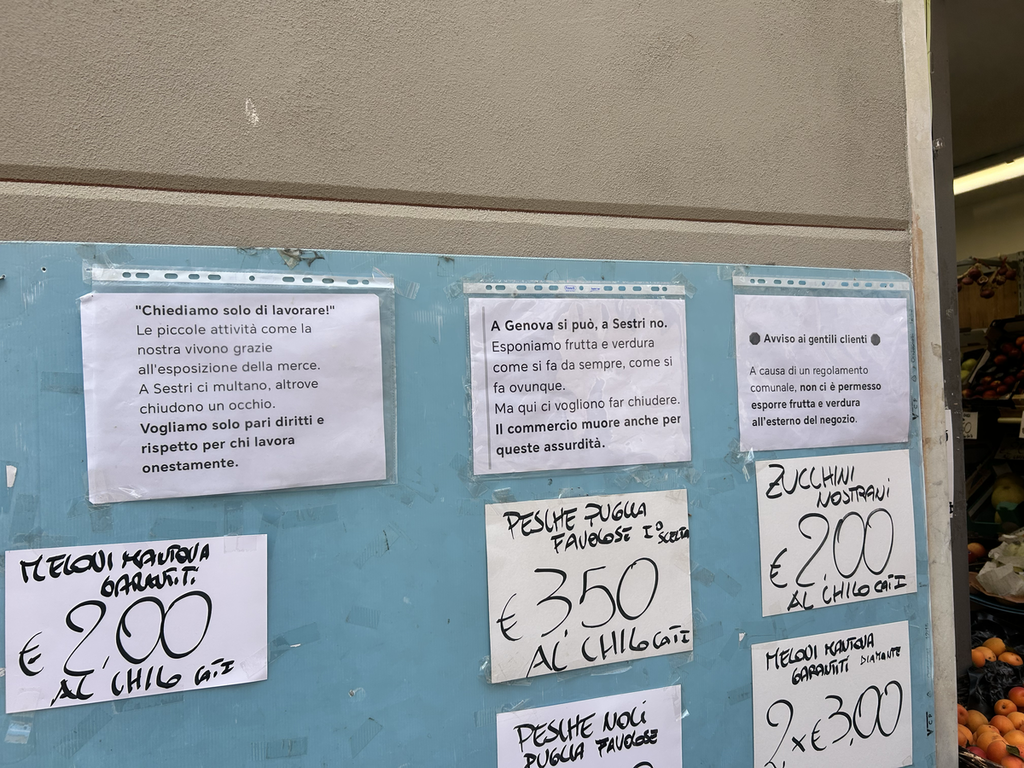 "Chiediamo solo di lavorare!"
Le piccole attività come la
nostra vivono grazie
all'esposizione della merce.
A Sestri ci multano, altrove
chiudono un occhio.
Vogliamo solo pari diritti e
rispetto per chi lavora
onestamente.
A Genova si può, a Sestri no.
Esponiamo frutta e verdura
come si fa da sempre, come si
fa ovunque.
Ma qui ci vogliono far chiudere.
Il commercio muore anche per
queste assurdità.
Avviso ai gentili clienti
A causa di un regolamento
comunale, non ci è permesso
esporre frutta e verdura
all'esterno del negozio.
MELONI MANTOVA
GARANTITI
€ 2,00
AL CHILO CAT I
PESCHE PUGLIA
FAVOLOSE I° SCELTA
€ 3,50
AL CHILO CAT I
ZUCCHINI
NOSTRANI
€ 2,00
AL CHILO CAT I
PESCHE NOCI
PUGLIA FAVOLOSE
MELONI MANTOVA
GARANTITI DIAMANTE
2 x € 3,00